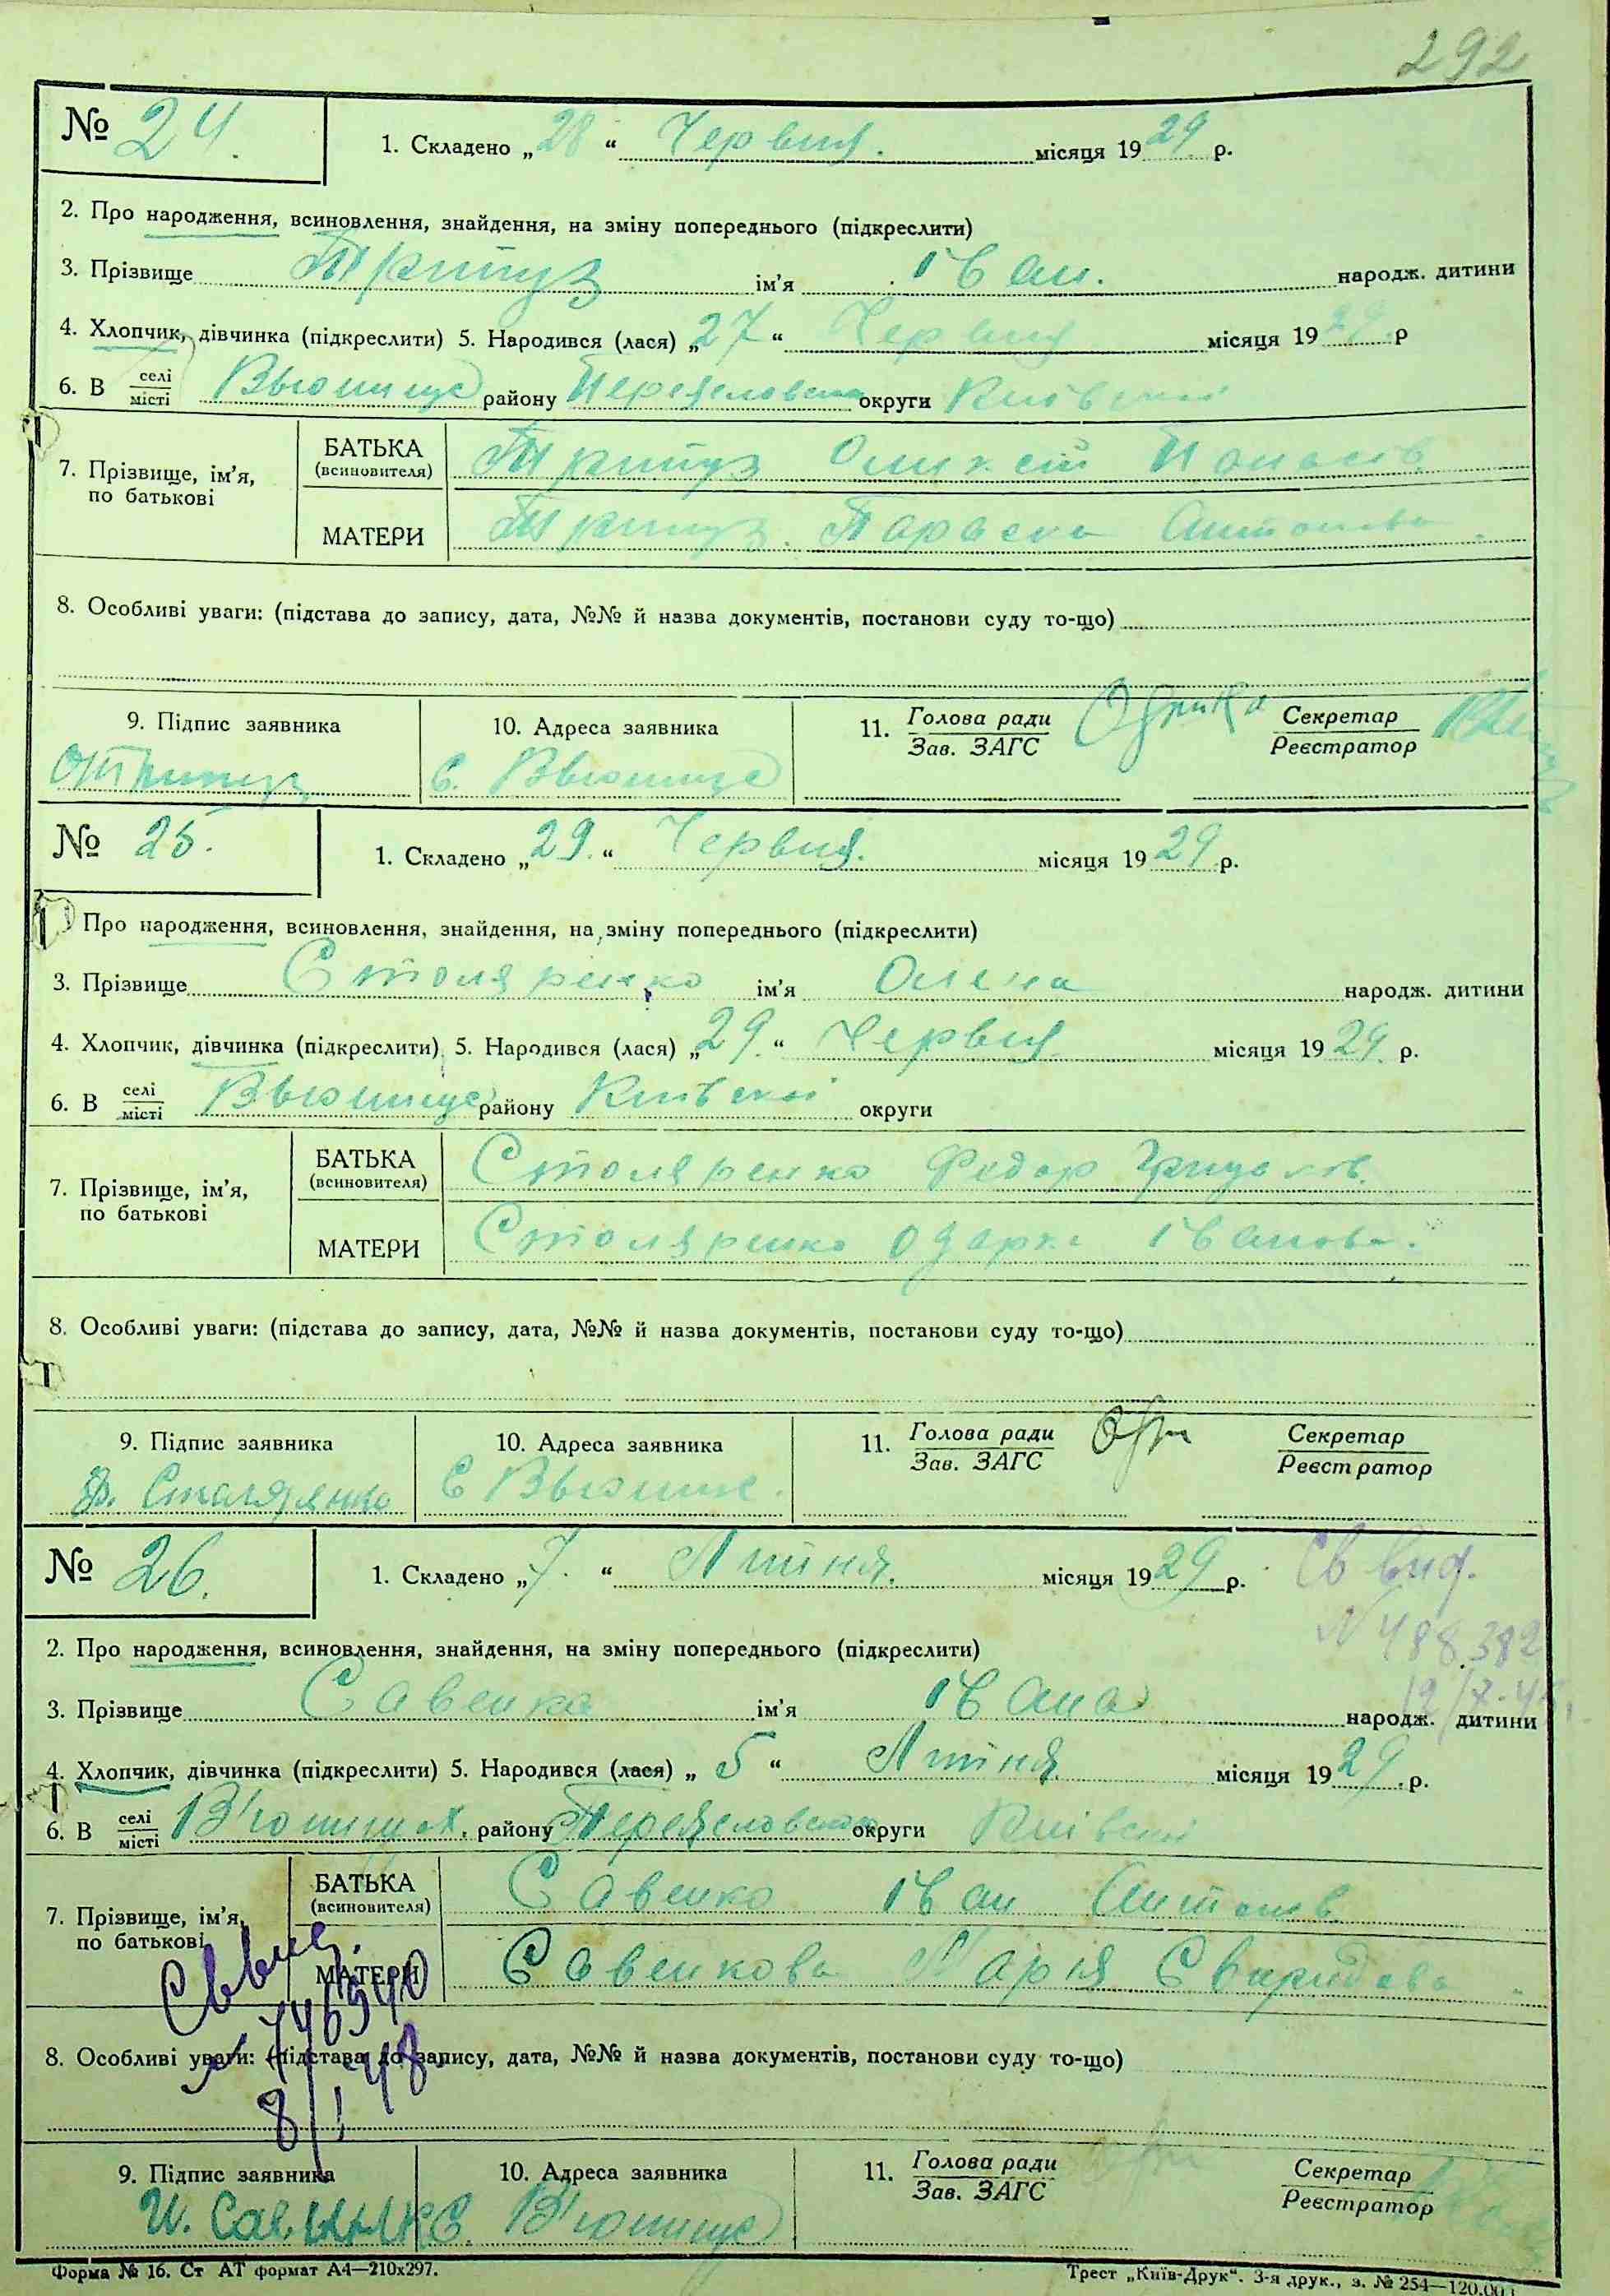 292
№ 24. 1. Складено „28“ Червня. місяця 1929 р.
2. Про народження, всиновлення, знайдення, на зміну попереднього (підкреслити)
3. Прізвище Тритуз ім’я Іван. народж. дитини
4. Хлопчик, дівчинка (підкреслити) 5. Народився (лася) „27“ Червня місяця 1929 р
6. В селі місті Вьюнище району округи Київской
7. Прізвище, ім’я, по батькові
БАТЬКА (всиновителя) Тритуз
МАТЕРИ Тритуз. Параска Антонова
8. Особливі уваги: (підстава до запису, дата, №№ й назва документів, постанови суду то-що)
9. Підпис заявника 10. Адреса заявника 11. Голова ради Зав. ЗАГС Секретар Реєстратор
с. Вьюнище
№ 25. 1. Складено „29.“ Червня. місяця 1929 р.
Про народження, всиновлення, знайдення, на зміну попереднього (підкреслити)
3. Прізвище Столяренко ім’я Олена народж. дитини
4. Хлопчик, дівчинка (підкреслити) 5. Народився (лася) „29.“ Червня місяця 1929 р.
6. В селі місті Вьюнище району Київской округи
7. Прізвище, ім’я, по батькові
БАТЬКА (всиновителя) Столяренко Федор
МАТЕРИ Столяренко Одарка Іванова.
8. Особливі уваги: (підстава до запису, дата, №№ й назва документів, постанови суду то-що)
9. Підпис заявника 10. Адреса заявника 11. Голова ради Зав. ЗАГС Секретар Реєстратор
Ф. с Вьюнище.
№ 26. 1. Складено „7.“ Липня. місяця 1929 р. Св вид.
N 488382
2. Про народження, всиновлення, знайдення, на зміну попереднього (підкреслити)
3. Прізвище Савенка ім’я Івана народж. дитини
4. Хлопчик, дівчинка (підкреслити) 5. Народився (лася) „5“ Липня місяця 1929 р.
6. В селі місті В'юнищах. району округи Київскої
7. Прізвище, ім’я, по батькові
БАТЬКА (всиновителя) Савенко Іван Антонів
МАТЕРИ Савенкова Марія Свиридова
8. Особливі уваги: (підстава до запису, дата, №№ й назва документів, постанови суду то-що)
9. Підпис заявника 10. Адреса заявника 11. Голова ради Зав. ЗАГС Секретар Реєстратор
с. В'юнище
Форма № 16. Ст АТ формат А4—210х297. Трест „Київ-Друк“. 3-я друк., з. № 254—120.000